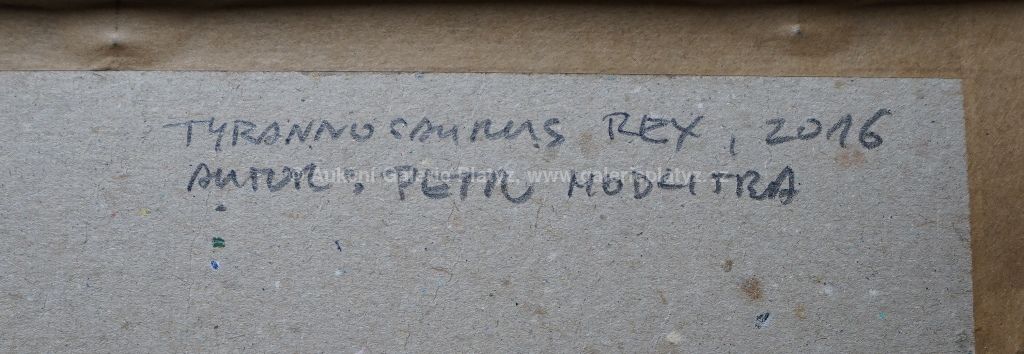 TYRANNOSAURUS REX, 2016
AUTOR: PETR MODLITBA
© Aukční Galerie Platýz, www.galerieplatyz.cz